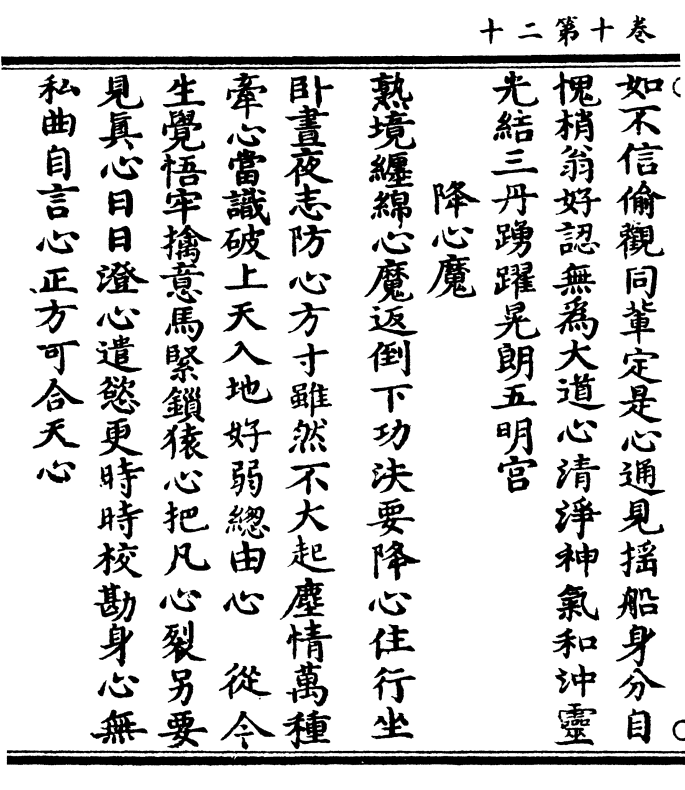 卷十第二十
如不信偷觀同輩定是心通見搖船身分自
愧梢翁好認無爲大道心清淨神氣和沖靈
光結三丹踴躍晃朗五明宮
降心魔
熟境纏綿心魔返倒下功決要降心住行坐
卧晝夜志防心方寸雖然不大起塵情萬種
牽心當識破上天入地好弱緫由心　從今
生覺悟牢擒意馬緊鎖猿心把凡心裂另要
見真心日日澄心遣慾更時時校勘身心無
私曲自言心正方可合天心